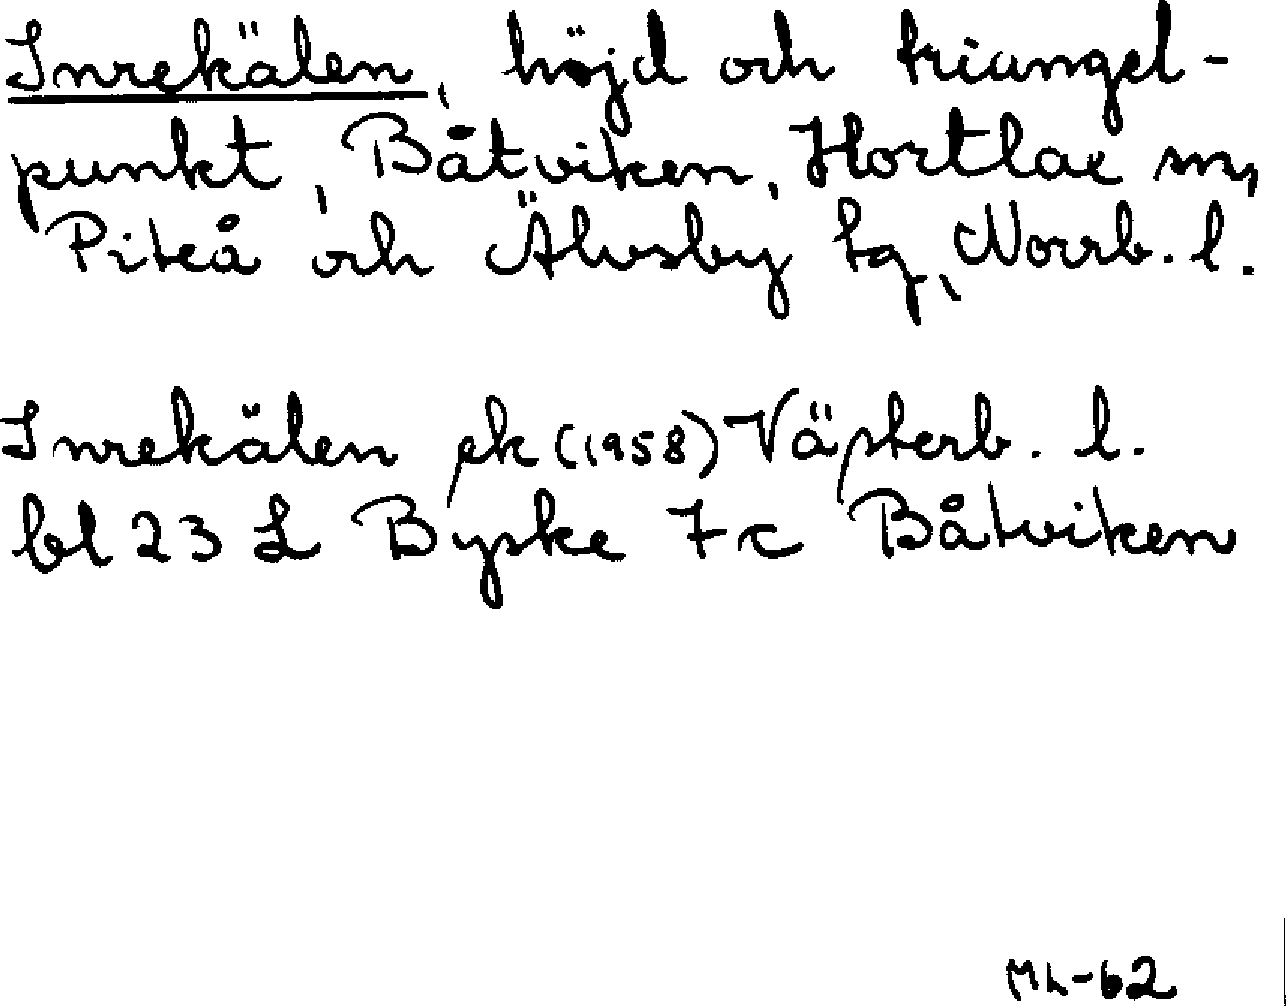 Inrekälen, höjd och triangel-
punkt, Båtviken, Hortlax sn,
Piteå och Älvsby tg, Norrb. l.
Inrekälen ek (1958) Västerb. l.
bl 23 L Byske 7 c Båtviken
ML-62